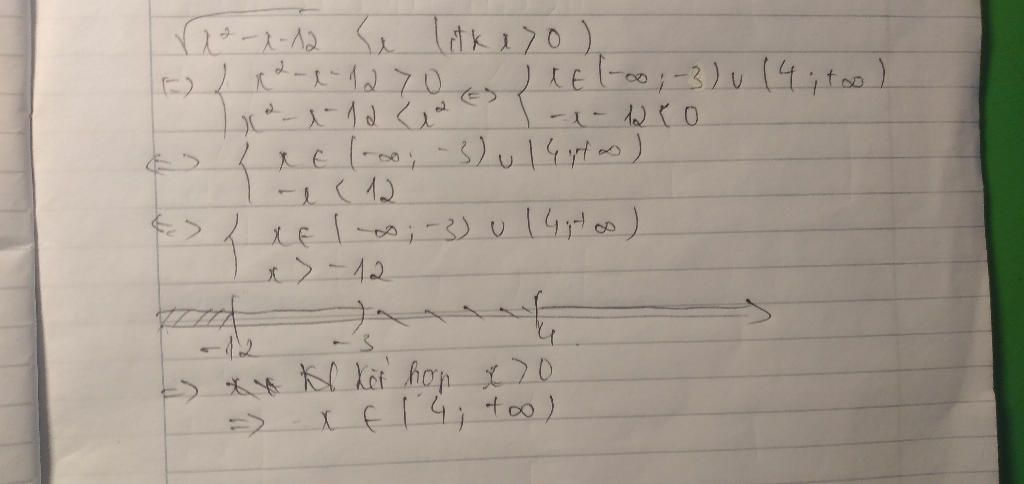 √x²-x-12 < x (đk x > 0)
⇔ { x²-x-12 > 0 ⇔ { x ∈ (-∞; -3) ∪ (4; +∞)
x²-x-12 < x² -x-12 < 0
⇔ { x ∈ (-∞; -3) ∪ (4; +∞)
-x < 12
⇔ { x ∈ (-∞; -3) ∪ (4; +∞)
x > -12
-12 -3 4
⇒ Kết hợp x > 0
⇒ x ∈ (4; +∞)